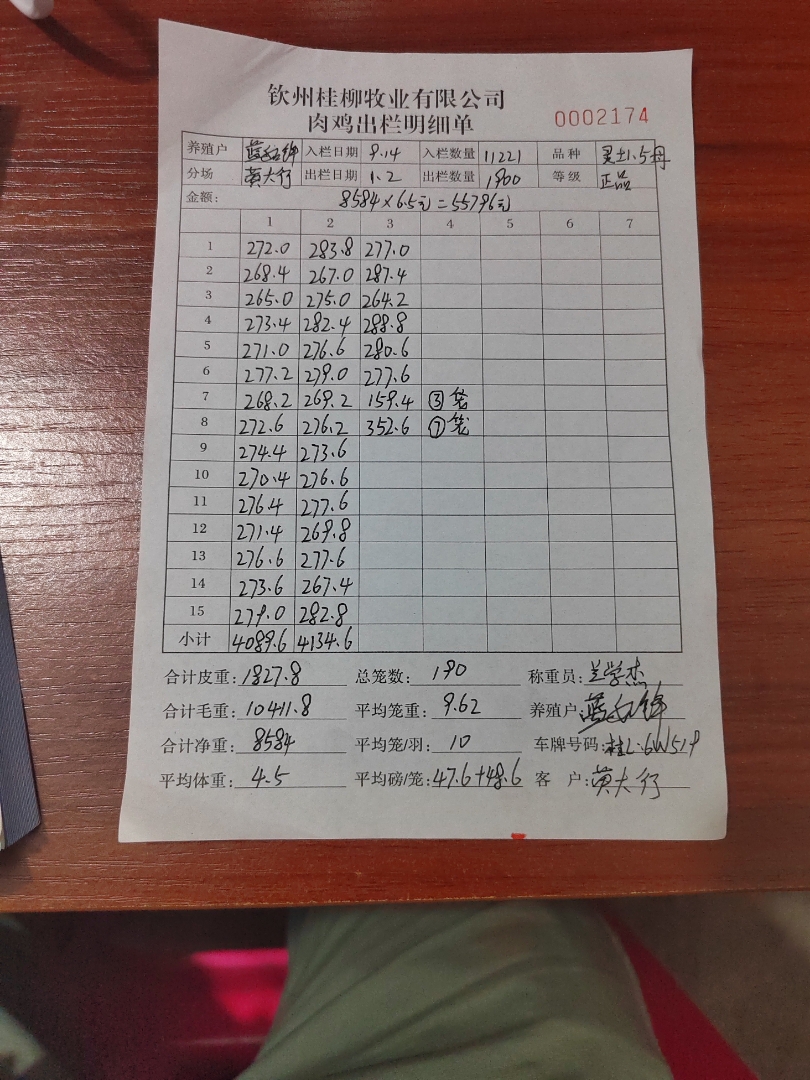 钦州桂柳牧业有限公司
肉鸡出栏明细单 0002174
养殖户 入栏日期 9.14 入栏数量 11221 品种 灵土1.5母
分场 黄大行 出栏日期 1.2 出栏数量 1900 等级 正品
金额: 8584×6.5元=55796元
1 2 3 4 5 6 7
1 272.0 283.8 277.0
2 268.4 267.0 287.4
3 265.0 275.0 264.2
4 273.4 282.4 288.8
5 271.0 276.6 280.6
6 277.2 279.0 277.6
7 268.2 269.2 159.4 ③笼
8 272.6 276.2 352.6 ⑦笼
9 274.4 273.6
10 270.4 276.6
11 276.4 277.6
12 271.4 269.8
13 276.6 277.6
14 273.6 267.4
15 279.0 282.8
小计 4089.6 4134.6
合计皮重: 1827.8 总笼数: 190 称重员: 兰学杰
合计毛重: 10411.8 平均笼重: 9.62 养殖户:
合计净重: 8584 平均笼/羽: 10 车牌号码: 桂L·6W519
平均体重: 4.5 平均磅/笼: 47.6+48.6 客 户: 黄大行